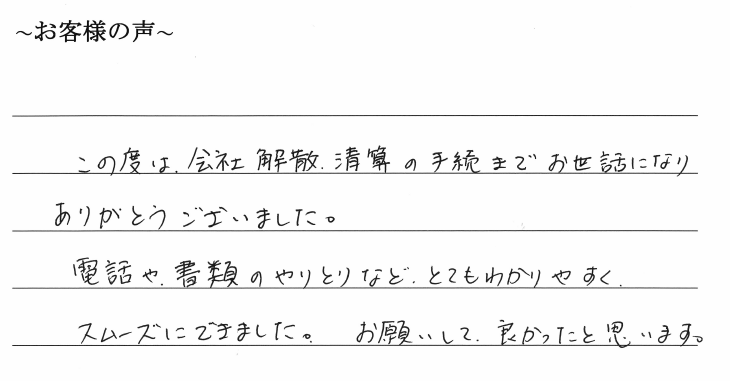 ~お客様の声~
この度は、会社解散、清算の手続までお世話になり
ありがとうございました。
電話や、書類のやりとりなど、とてもわかりやすく、
スムーズにできました。 お願いして、良かったと思います。